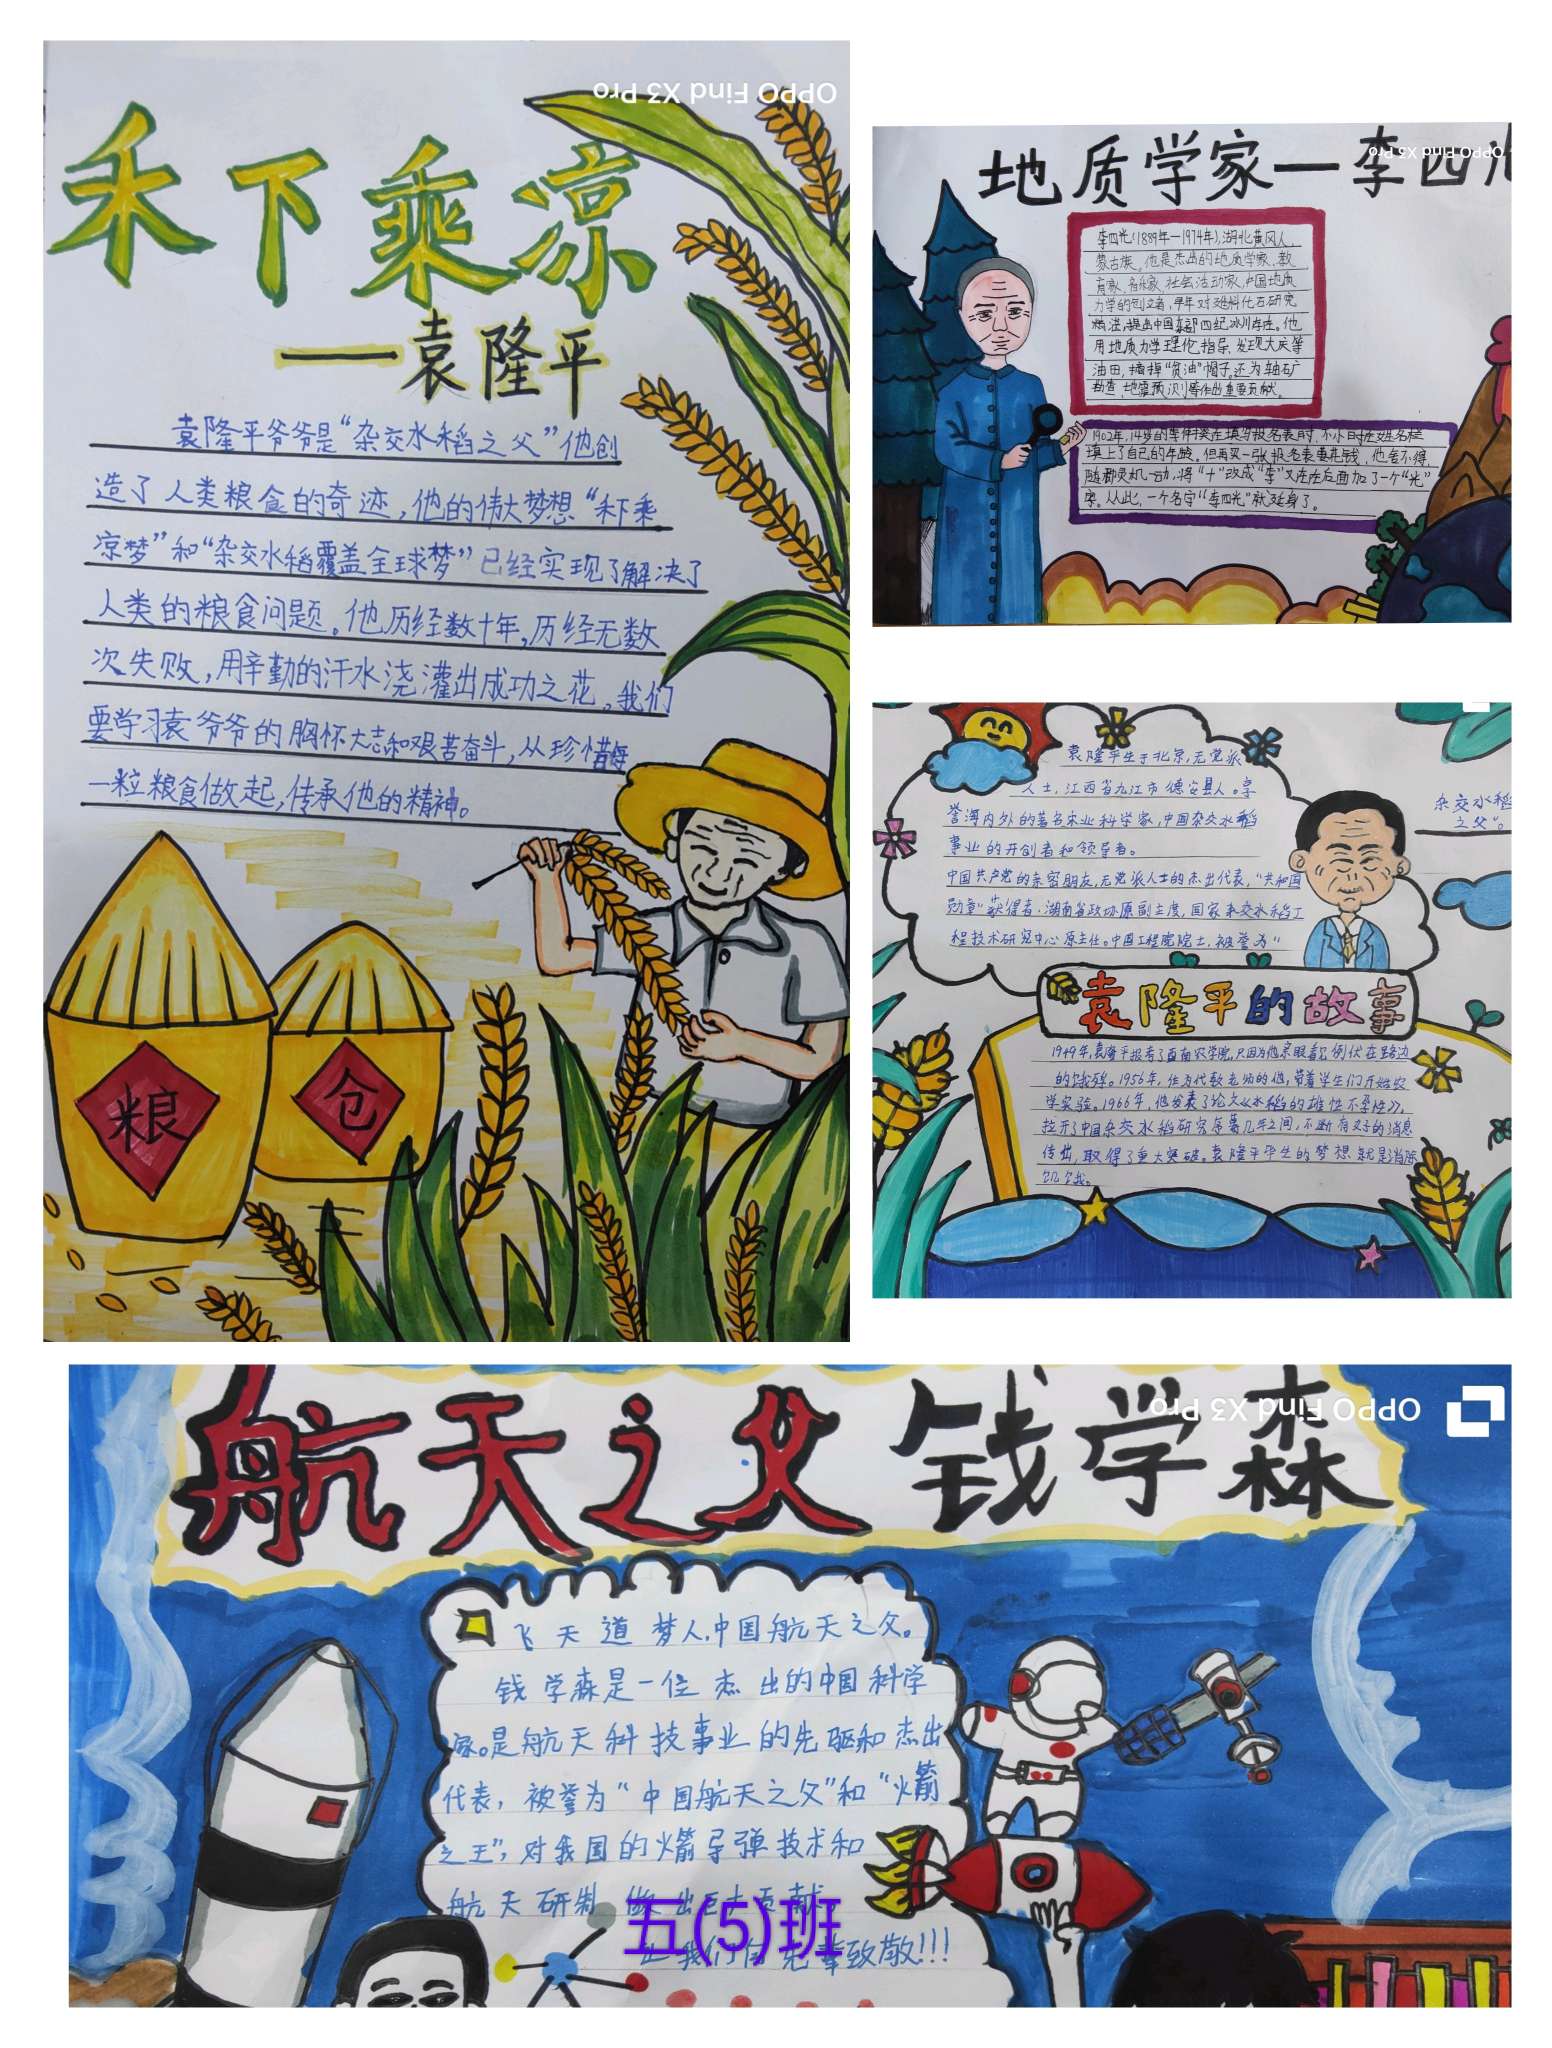 OPPO Find X3 Pro
禾下乘凉
一袁隆平
袁隆平爷爷是“杂交水稻之父”他创
造了人类粮食的奇迹，他的伟大梦想“禾下乘
凉梦”和“杂交水稻覆盖全球梦”已经实现了解决了
人类的粮食问题。他历经数十年，历经无数
次失败，用辛勤的汗水浇灌出成功之花。我们
要学习袁爷爷的胸怀大志和艰苦奋斗，从珍惜每
一粒粮食做起，传承他的精神。
粮
仓
OPPO Find X3 Pro
地质学家一李四光
李四光（1889年一1974年），湖北黄冈人，
蒙古族。他是杰出的地质学家、教
育家、音乐家、社会活动家，中国地质
力学的创立者，早年对蜓科化石研究
精湛，提出中国东部四纪冰川存在。他
用地质力学理伦指导，发现大庆等
油田，摘掉“贫油”帽子，还为铀矿
勘查、地震预测等作出重要贡献。
1902年，14岁的李仲揆在填写报名表时，不小时在姓名栏
填上了自己的年龄。但再买一张报名表要花钱，他舍不得，
随那灵机一动，将“十”改成“李”又在后面加了一个“光”
字。从此，一个名字“李四光”就诞身了。
袁隆平生于北京，无党派
人士，江西省九江市德安县人。享
誉海内外的著名农业科学家，中国杂交水稻
事业的开创者和领导者。
中国共产党的亲密朋友，无党派人士的杰出代表，“共和国
勋章”获得者，湖南省政协原副主席，国家杂交水稻工
程技术研究中心原主任。中国工程院院士，被誉为“
杂交水稻
之父”。
袁隆平的故事
1949年，袁隆平报考了西南农学院，只因为他亲眼看见倒伏在路边
的饿殍。1956年，作为代教老师的他，带着学生们开始农
学实验。1966年，他发表了论文《水稻的雄性不孕性》，
拉开了中国杂交水稻研究序幕几年之间，不断有好的消息
传出，取得了重大突破。袁隆平毕生的梦想就是消除
饥饿。
OPPO Find X3 Pro
航天之父 钱学森
飞天道梦人，中国航天之父。
钱学森是一位杰出的中国科学
家。是航天科技事业的先驱和杰出
代表，被誉为“中国航天之父”和“火箭
之王”，对我国的火箭导弹技术和
航天研制做出巨大贡献
五(5)班
让我们向先辈致敬!!!